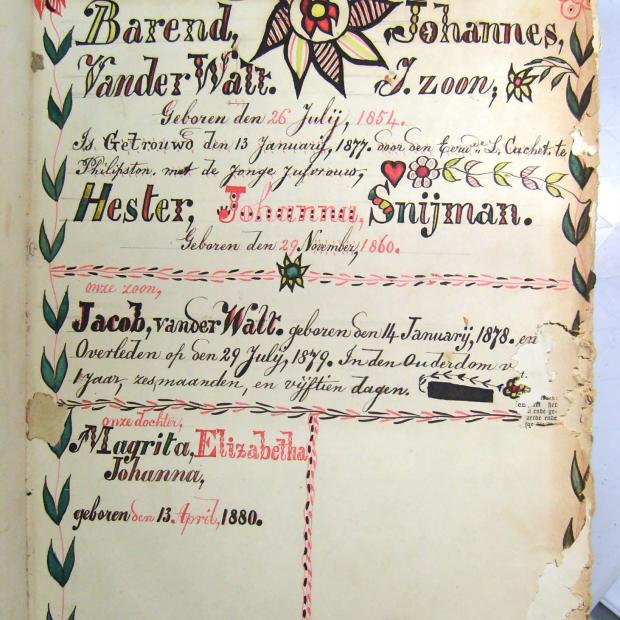 Barend, Johannes,
Vander Walt. J. zoon;
Geboren den 26 Julij, 1854.
Is Getrouwd den 13 Januarij, 1877. door den Eerwde L, Cachet. te
Philipston, met de Jonge Jufvrouw,
Hester, Johanna, Snijman.
Geboren den 29 November, 1860.
onze zoon,
Jacob, vander Walt. geboren den 14 Januarij, 1878. en
Overleden op den 29 July, 1879. In den Ouderdom v
1 jaar, zes maanden, en vijftien dagen.
onze dochter,
Magrita, Elizabetha
Johanna,
geboren den 13 April, 1880.